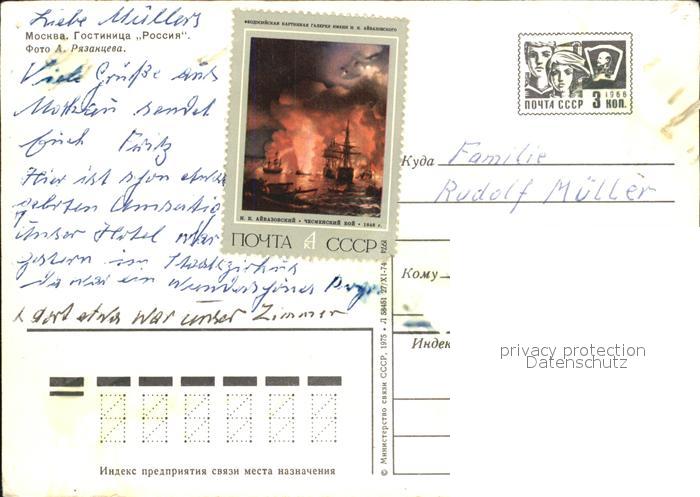 Liebe Müllers
Москва. Гостиница „Россия".
Фото А. Рязанцева.
Viele Grüße aus
Moskau sendet
Euch Fritz
Hier ist schon etwas
Unser Hotel war
gestern im Staatzirkus
da war ein wunderschönes
dort etwa war unser Zimmer
ФЕОДОСИЙСКАЯ КАРТИННАЯ ГАЛЕРЕЯ ИМЕНИ И. К. АЙВАЗОВСКОГО
И. К. АЙВАЗОВСКИЙ • ЧЕСМЕНСКИЙ БОЙ • 1848 г.
ПОЧТА 4 К СССР
1974
1966
ПОЧТА СССР 3 КОП.
Куда Familie
Rudolf Müller
Кому
Индекс
privacy protection
Datenschutz
© Министерство связи СССР, 1975 • Л 58451 27/XI-74
Индекс предприятия связи места назначения